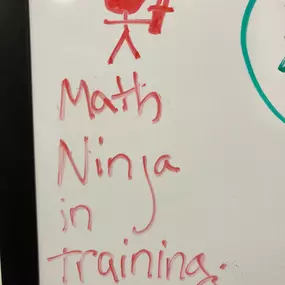 Math
Ninja
in
training.